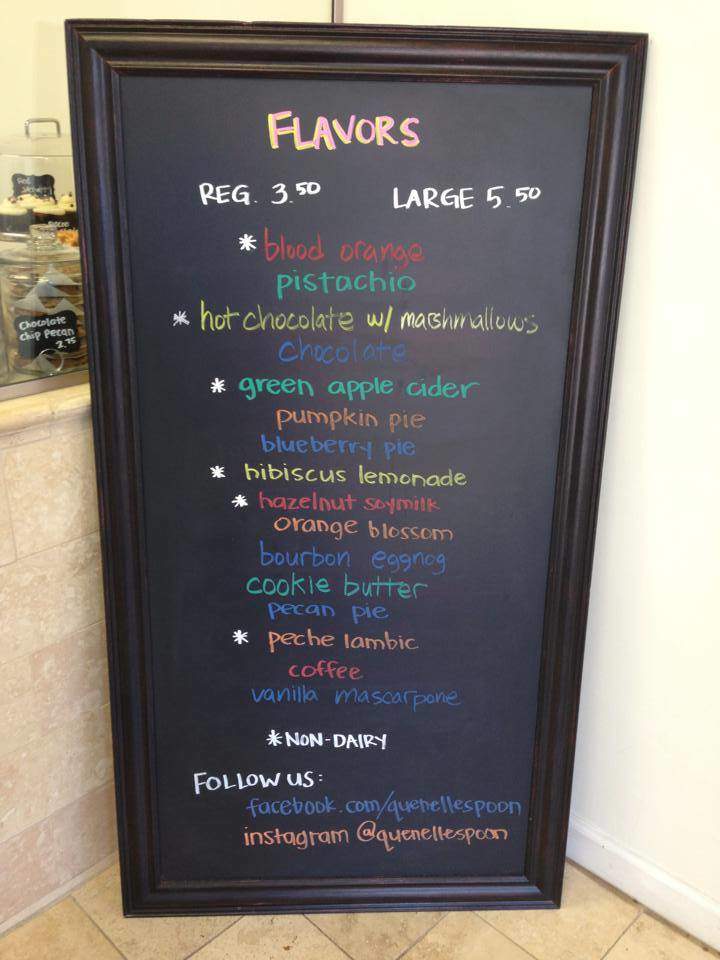 FLAVORS
REG. 3.50 LARGE 5.50
* blood orange
pistachio
* hot chocolate w/ marshmallows
chocolate
* green apple cider
pumpkin pie
blueberry pie
* hibiscus lemonade
* hazelnut soymilk
orange blossom
bourbon eggnog
cookie butter
pecan pie
* peche lambic
coffee
vanilla mascarpone
*NON-DAIRY
FOLLOW US:
facebook.com/quenellespoon
instagram @quenellespoon
Red
Chocolate
Chip Pecan
2.75